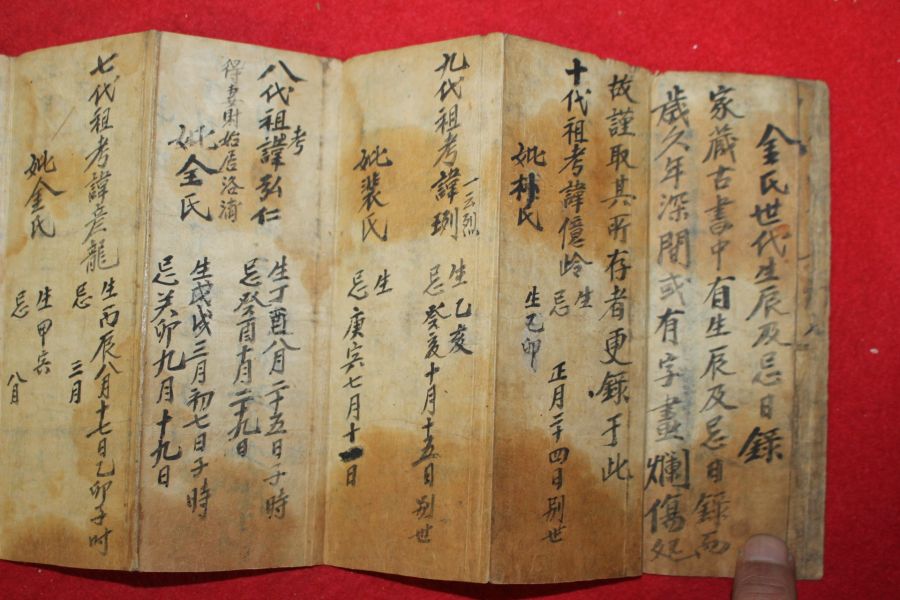 金氏世代生辰及忌日錄
家藏古書中有生辰及忌日錄而
歲久年深間或有字畫爛傷処
故謹取其所存者更錄于此
十代祖考諱億岭 生 忌 正月二十四日別世
妣朴氏 生乙卯
九代祖考諱珋 一云烈 生乙亥 忌癸亥十月十五日別世
妣裴氏 生 忌庚寅七月十一日
八代祖考諱弘仁 生丁酉八月二十五日子時 忌癸酉十月二十九日
得妻財始居洛浦
妣全氏 生戊戌三月初七日子時 忌癸卯九月十九日
七代祖考諱彦龍 生丙辰八月十七日乙卯子时 忌 三月
妣金氏 生甲寅 忌 八月